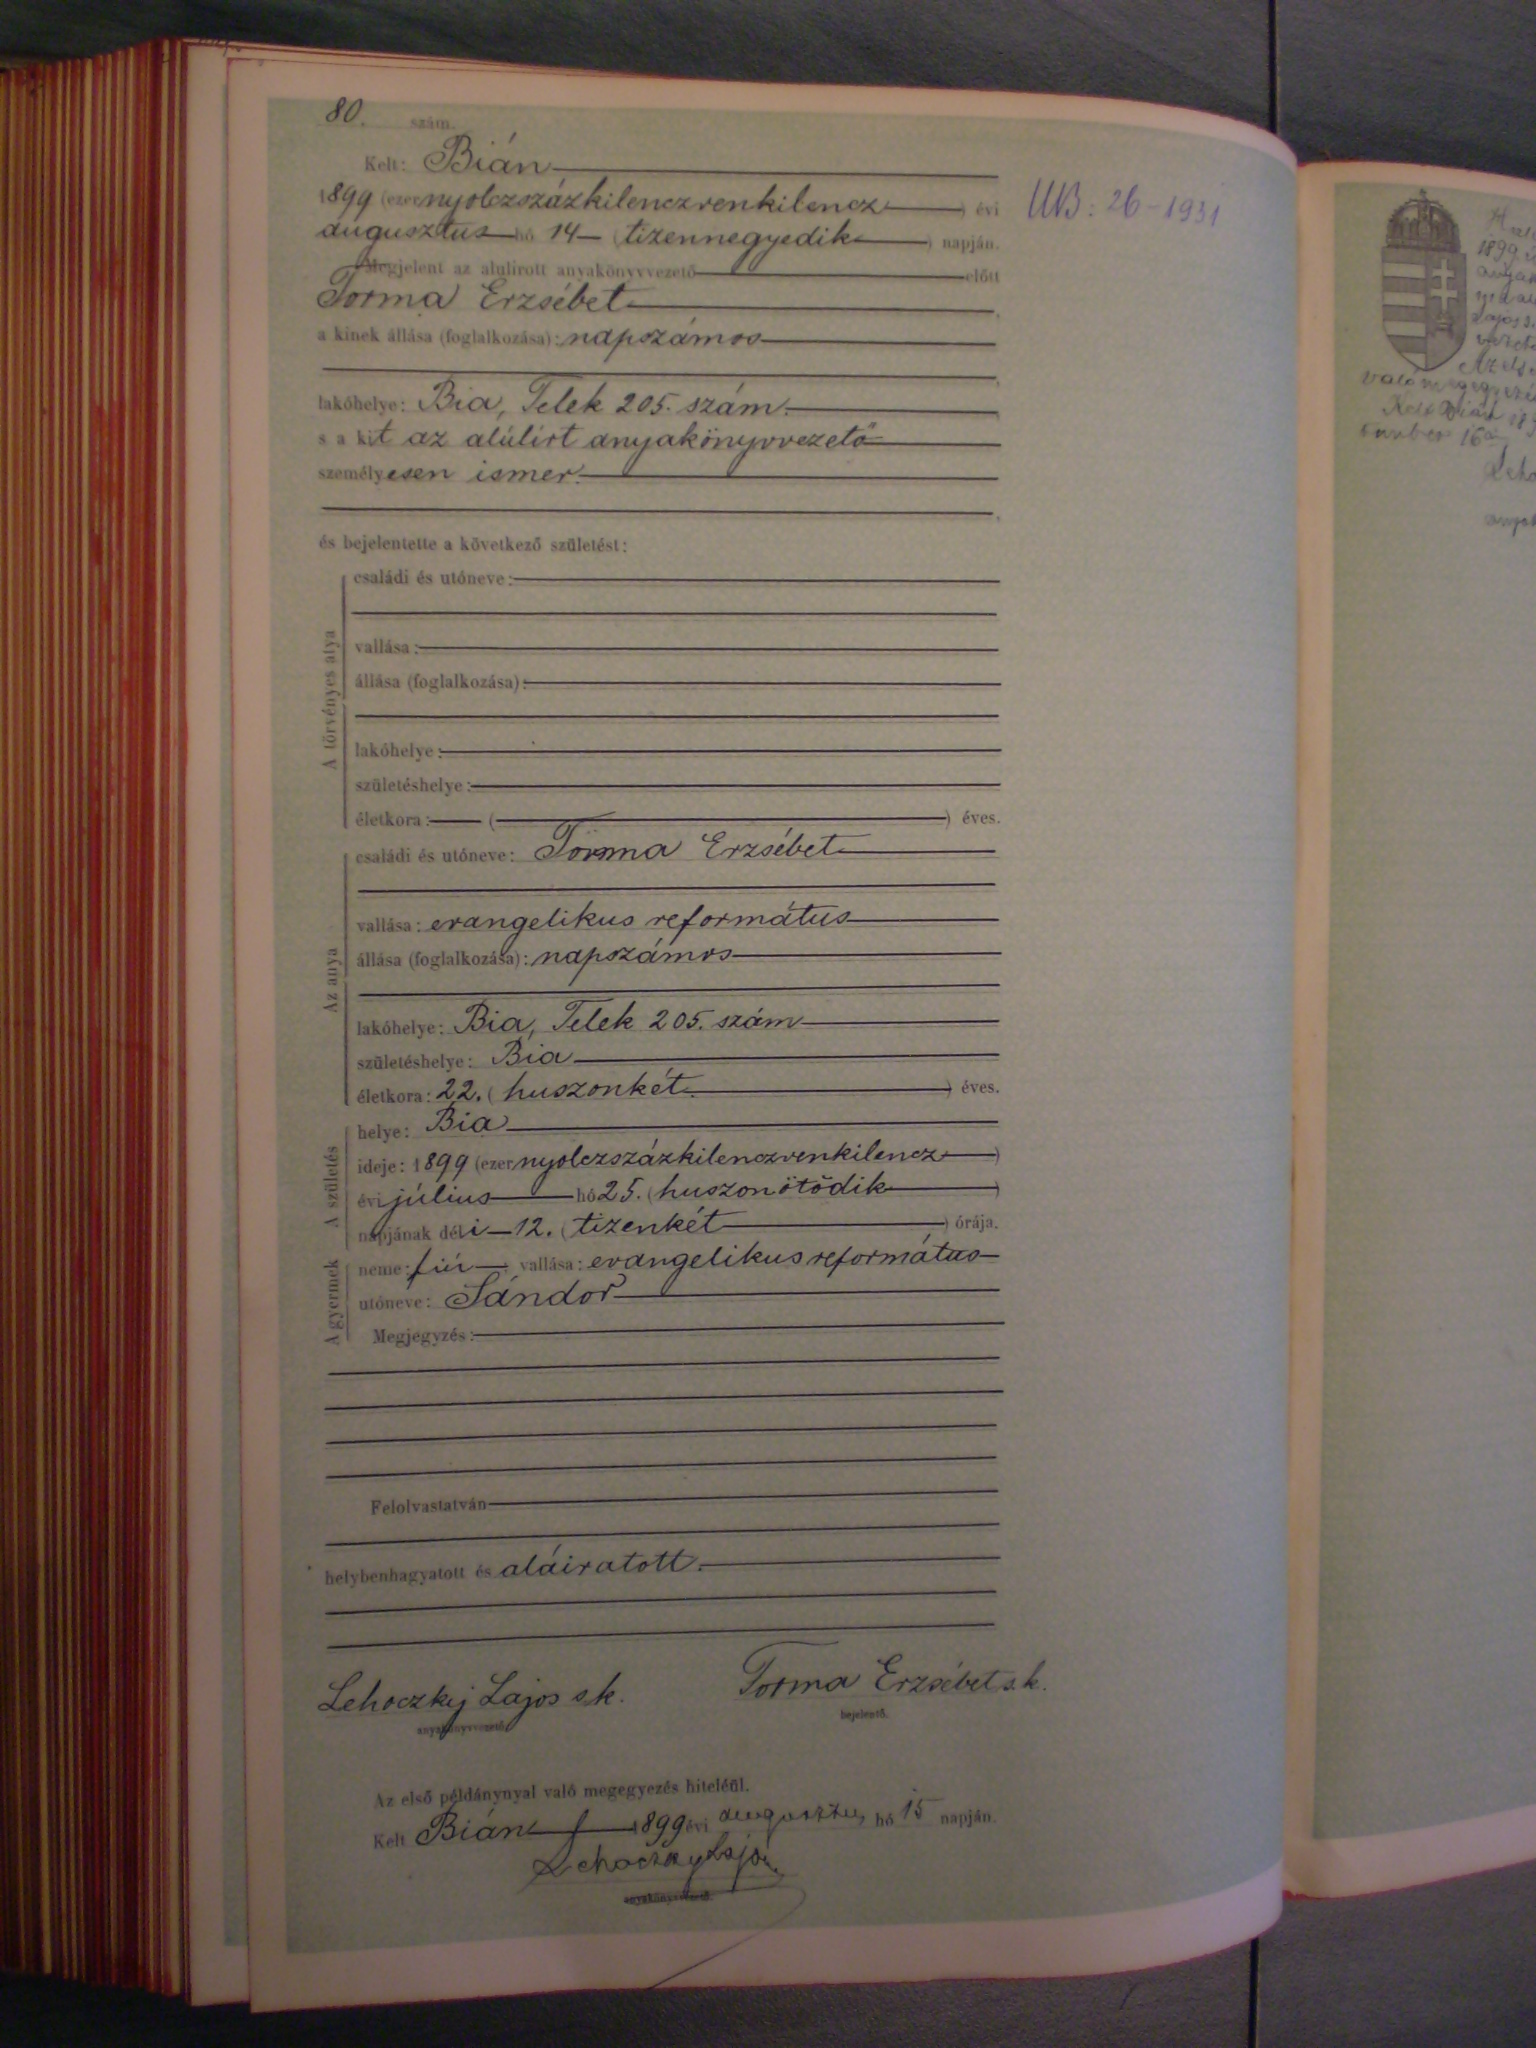 80. szám.
Kelt: Bián
1899 (ezernyolczszázkilenczvenkilencz) évi
UB: 26-1931
augusztus hó 14 (tizennegyedik) napján.
Megjelent az alulirott anyakönyvvezető előtt
Torma Erzsébet,
a kinek állása (foglalkozása): napszámos
,
lakóhelye: Bia, Telek 205. szám.
s a kit az alúlírt anyakönyvvezető
személyesen ismer.
,
és bejelentette a következő születést:
A törvényes atya
családi és utóneve:
vallása:
állása (foglalkozása):
lakóhelye:
születéshelye:
életkora: ( ) éves.
Az anya
családi és utóneve: Torma Erzsébet
vallása: evangelikus református
állása (foglalkozása): napszámos
lakóhelye: Bia, Telek 205. szám
születéshelye: Bia
életkora: 22. (huszonkét) éves.
A születés
helye: Bia
ideje: 1899 (ezernyolczszázkilenczvenkilencz)
évi július hó 25. (huszonötödik)
napjának déli 12. (tizenkét) órája.
A gyermek
neme: fiú, vallása: evangelikus református
utóneve: Sándor
Megjegyzés:
Felolvastatván
helybenhagyatott és aláiratott.
Lehoczky Lajos s k. Torma Erzsébet s. k.
anyakönyvvezető. bejelentő.
Az első példánynyal való megegyezés hiteléül.
Kelt Bián 1899 évi augusztus hó 15 napján.
Lehoczky Lajos
anyakönyvvezető.
1899
Lajos
való megegyezés
Kelt Bián 18
16